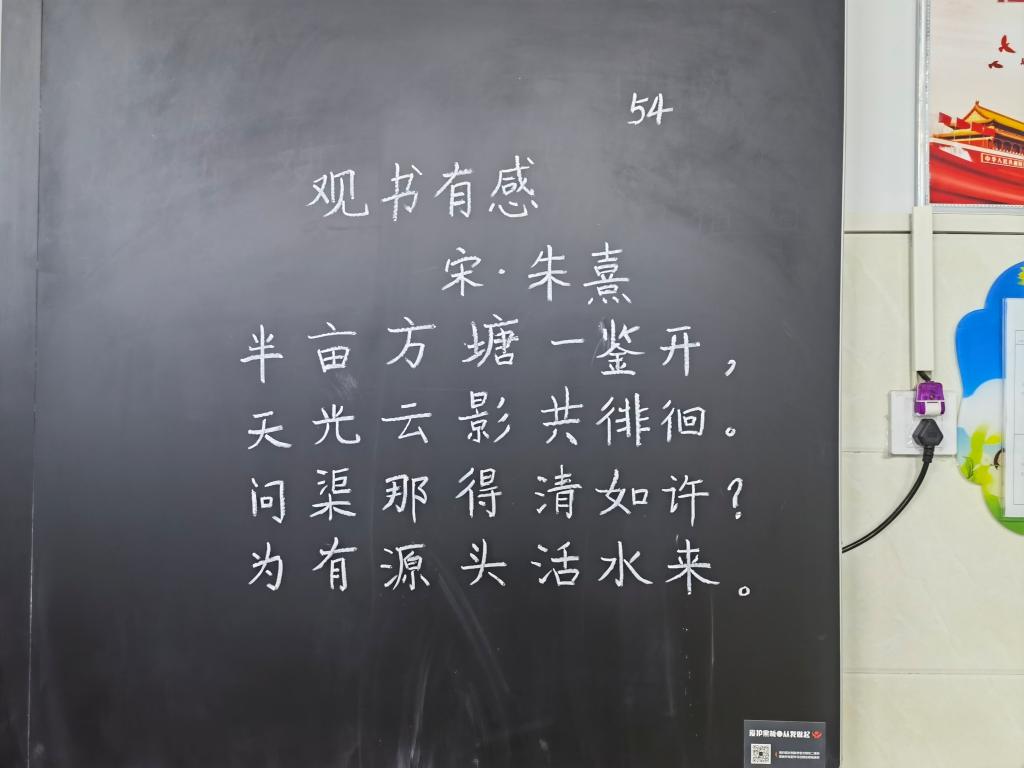 54
观书有感
宋·朱熹
半亩方塘一鉴开，
天光云影共徘徊。
问渠那得清如许？
为有源头活水来。